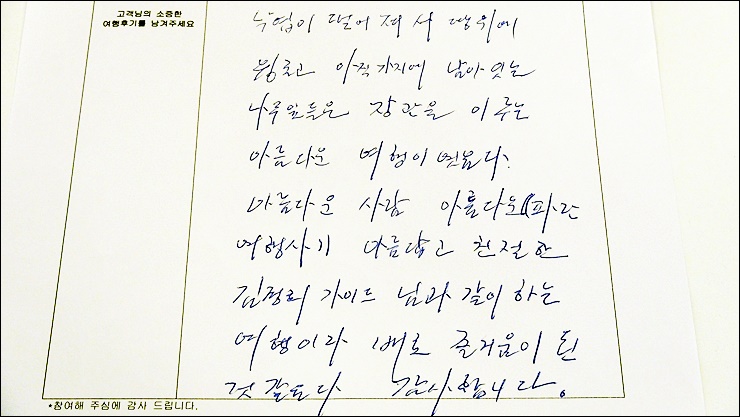 고객님의 소중한
여행후기를 남겨주세요
낙엽이 떨어져서 땅위에
뒹글고 아직 가지에 남아있는
나무잎들은 장관을 이루는
아름다운 여행이였읍니다.
아름다운 사람 아름다운 파란
여행사기 아름답고 친절한
가이드 님과 같이 하는
여행이라 배로 즐거움이 된
것 같읍니다 감사합니다.
*참여해 주심에 감사 드립니다.